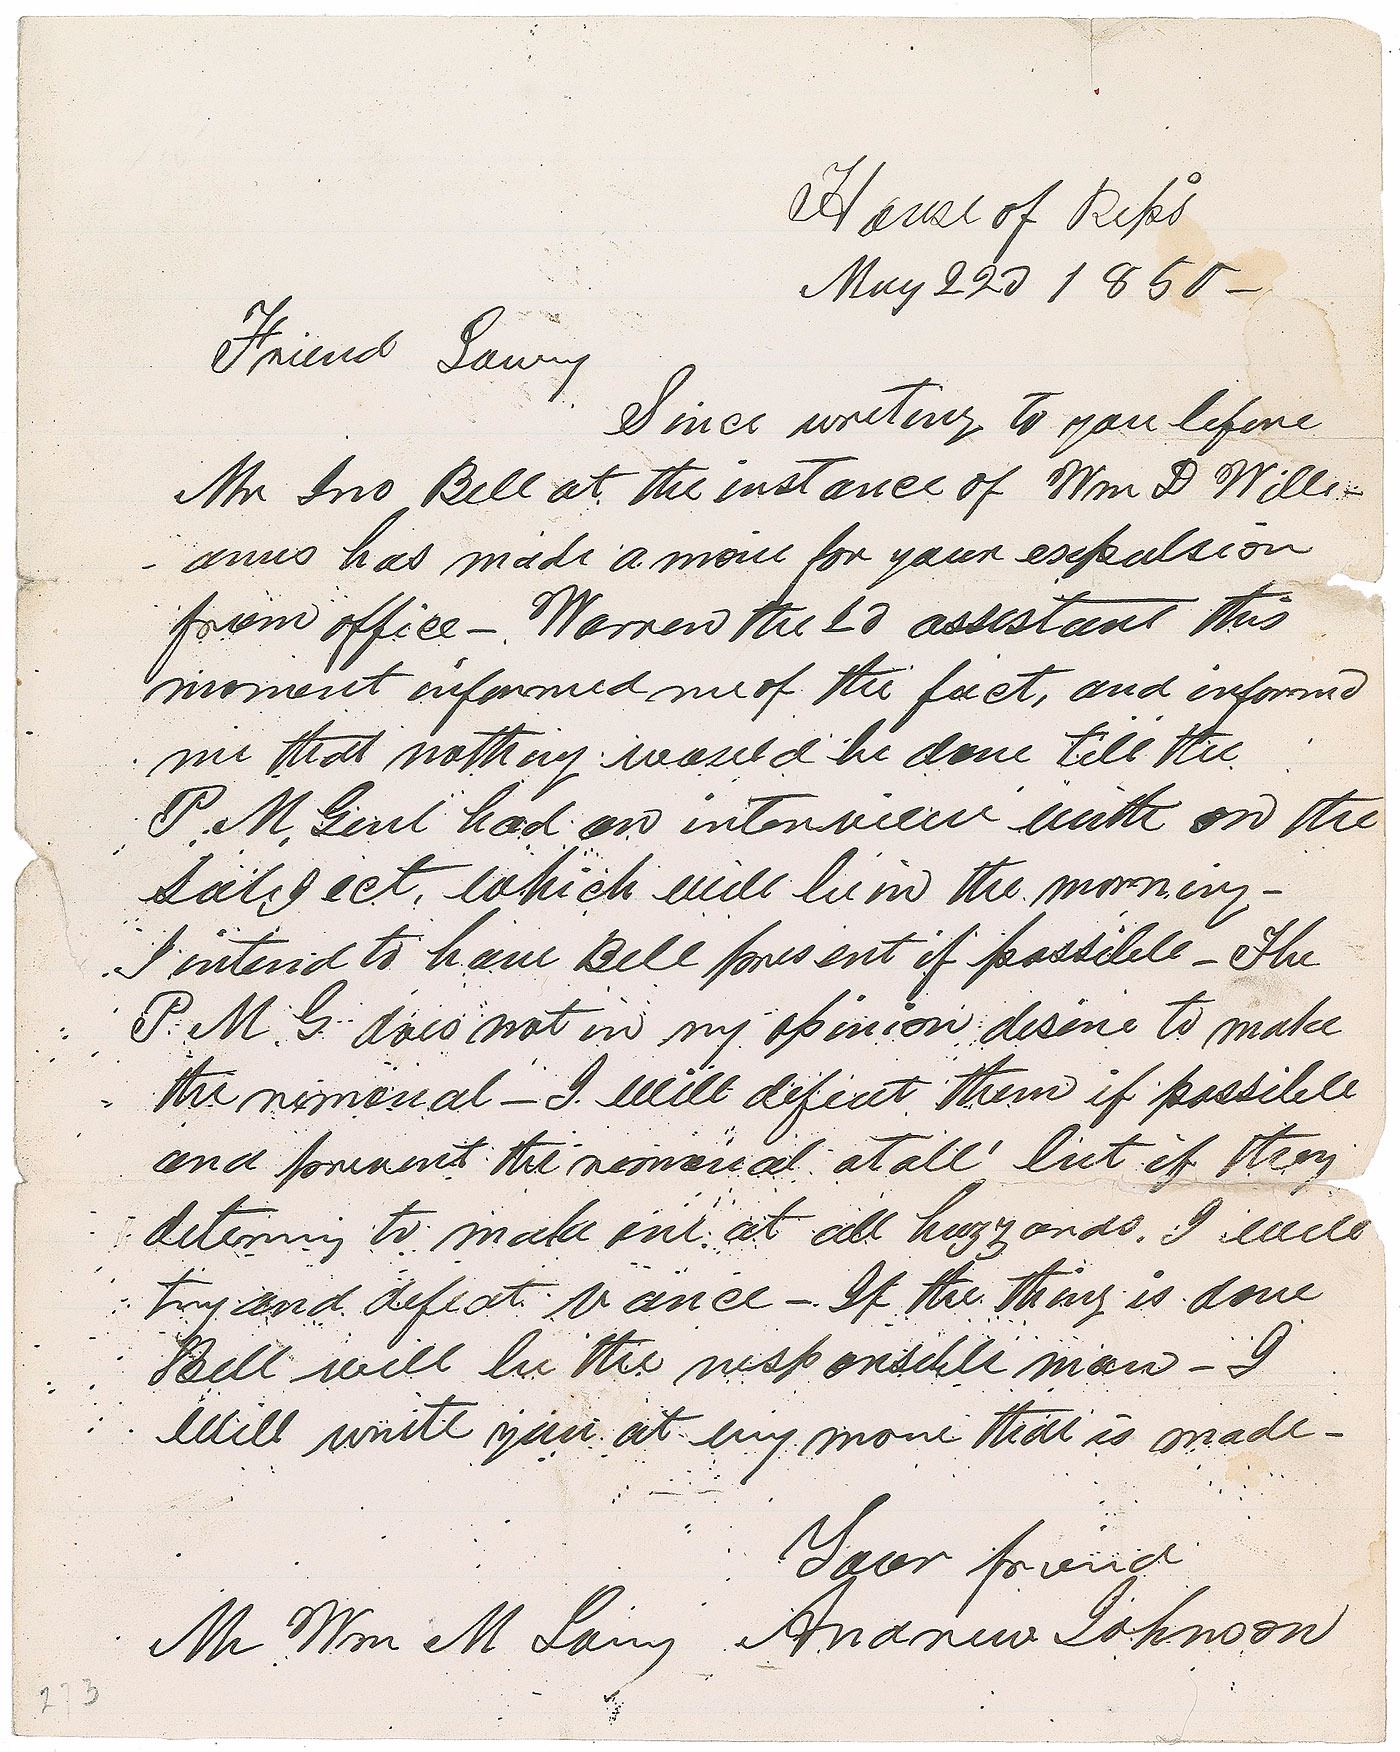 House of Reps
May 22d 1850 —
Friend Lowry
Since writing to you before
Mr Jno Bell at the instance of Wm D Willi-
- ams has made a move for your expulsion
from office — Warren the 2d assistant this
moment informed me of the fact, and informd
me that nothing would be done till the
P. M. Genl had an interview with on the
subject, which will be in the morning -
I intend to have Bell present if possible — The
P. M. G. does not in my opinion desire to make
the removal — I will defeat them if possible
and prevent the removal at all' but if they
determin to make one at all hazzards. I will
try and defeat Vance — If the thing is done
Bell will be the responsible man — I
will write you at evry move that is made —
Your friend
Mr Wm M Lowry Andrew Johnson
273